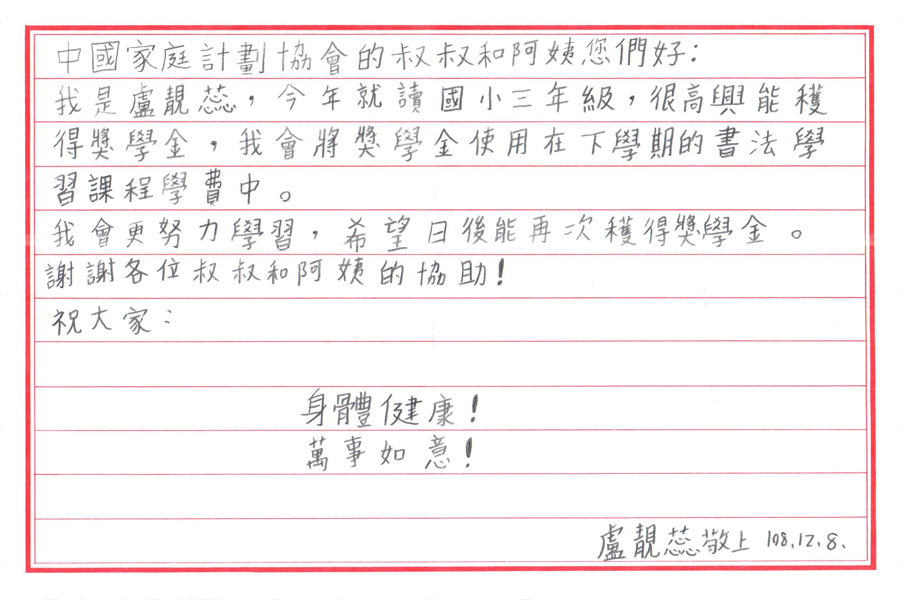 中國家庭計劃協會的叔叔和阿姨您們好：
我是盧靚蕊，今年就讀國小三年級，很高興能穫
得獎學金，我會將獎學金使用在下學期的書法學
習課程學費中。
我會更努力學習，希望日後能再次穫得獎學金。
謝謝各位叔叔和阿姨的協助！
祝大家：
身體健康！
萬事如意！
盧靚蕊敬上 108.12.8.